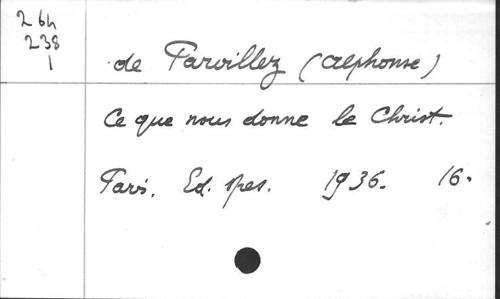 264
238
1
de Parvillez (Alphonse)
Ce que nous donne le Christ.
Paris. Ed. Spes. 1936. 16.